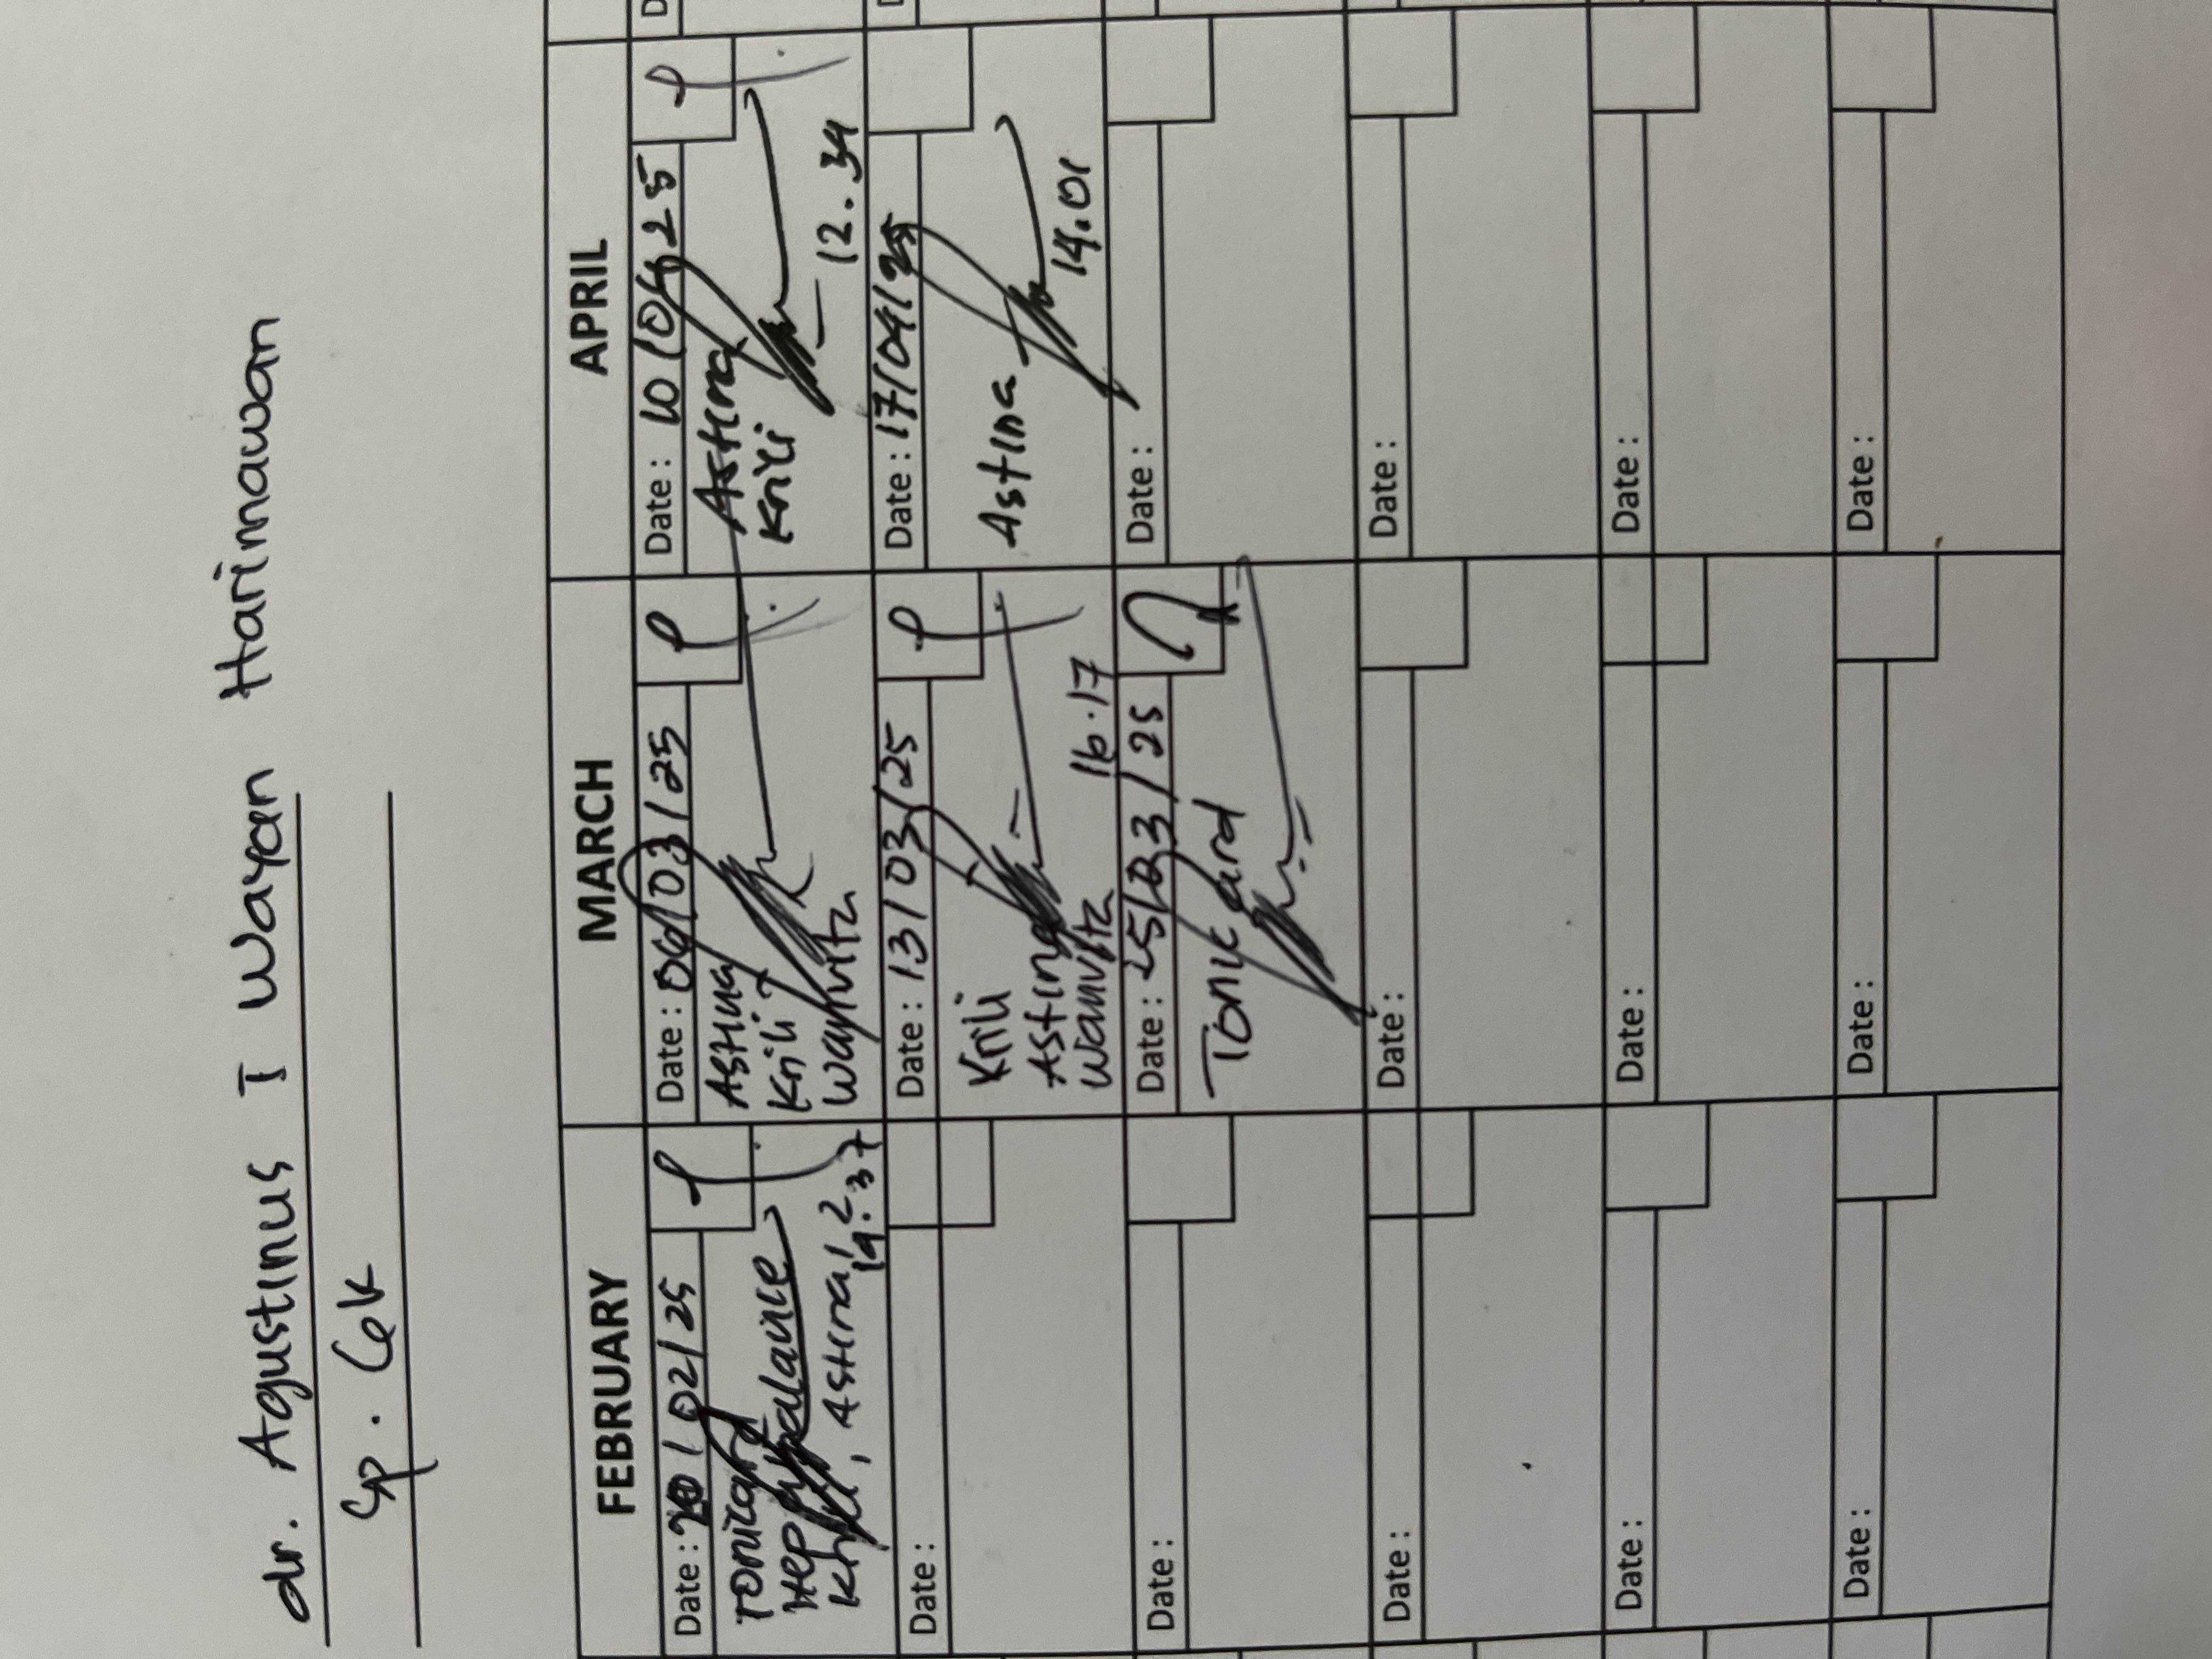 dr. Agustinus I Wayan Harimawan
Sp.
FEBRUARY
MARCH
APRIL
Date : 20/02/25
Tonicard
Hepabalance
Krili, Astina, 2
19.37
Date : 06/03/25
Astina
Krili
Wanvita
Date : 10/04/25
Astina
Krili
12.34
Date :
Date : 13/03/25
Krili
Astina
Wanvita 16.17
Date : 17/04/25
Astina
14.01
Date :
Date : 25/03/25
Tonicard
Date :
Date :
Date :
Date :
Date :
Date :
Date :
Date :
Date :
Date :